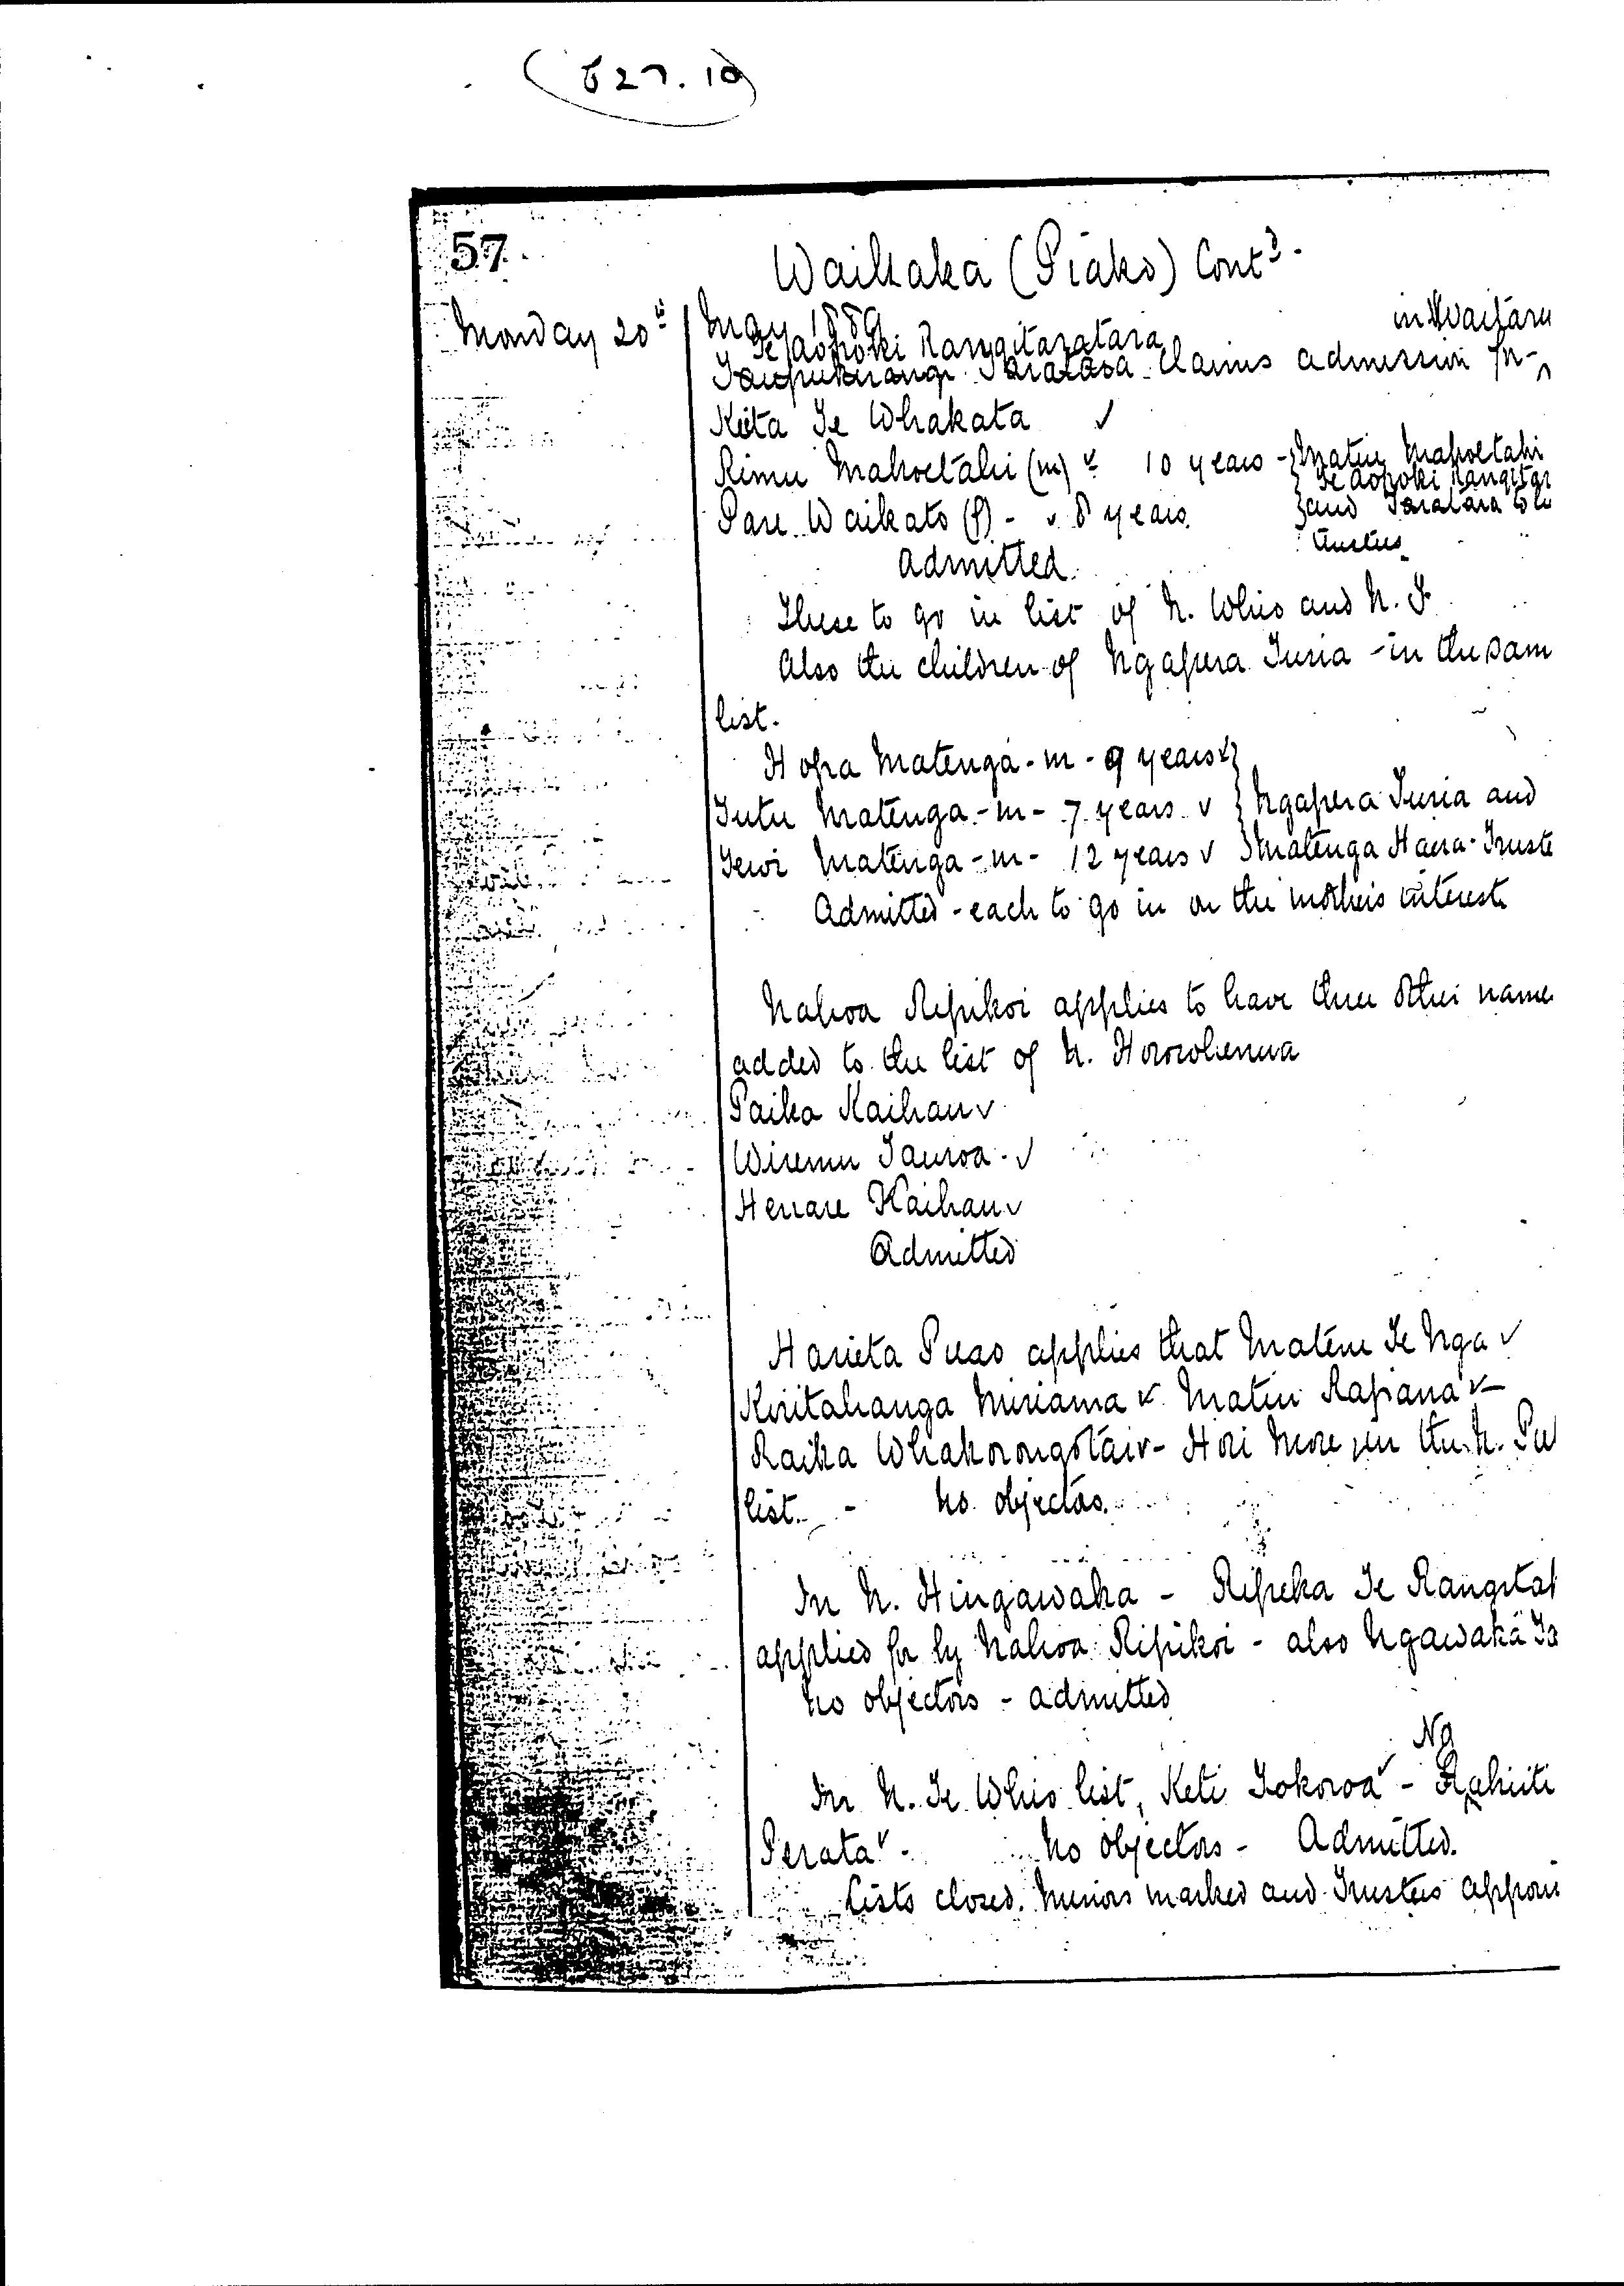 627.10
57
Waikaka (Piako) Contd.
Monday 20th May 1889
Te Aopoki Rangitaratara in Waitaru
Taratara claims admission for -
Keita Te Whakata ✓
Rimu Mahoetahi (m) ✓ 10 years - } Matiu Mahoetahi
} Te Aopoki Rangitar
Pare Waikato (f) - ✓ 8 years } and Taratara to be
trustees
Admitted.
These to go in list of N. Whio and N. T.
Also the children of Ngapera Turia - in the sam
list.
Hopa Matenga - m - 9 years ✓ }
Tutu Matenga - m - 7 years ✓ } Ngapera Turia and
Tewi Matenga - m - 12 years ✓ } Matenga Haera - Truste
Admitted - each to go in on the mothers interest
Nahoa Ripikoi applies to have three other name
added to the list of N. Horowhenua
Paika Kaihau ✓
Wiremu Tauroa - ✓
Henare Kaihau ✓
Admitted
Harieta Puao applies that Matene Te Nga ✓
Kiritahanga Miriama ✓ Matiu Rapana ✓ -
Raika Whakorongotai ✓ - Hori More in the N. Pu
list. - No objectors.
In N. Hingawaka - Ripeka Te Rangitah
applied for by Nahoa Ripikoi - also Ngawaka Ta
No objectors - admitted
Ng
In N. Te Whio list, Keti Tokoroa ✓ - Rahiiti
Perata ✓ - No objectors - Admitted.
Lists closed. Minors marked and Trustees appoin